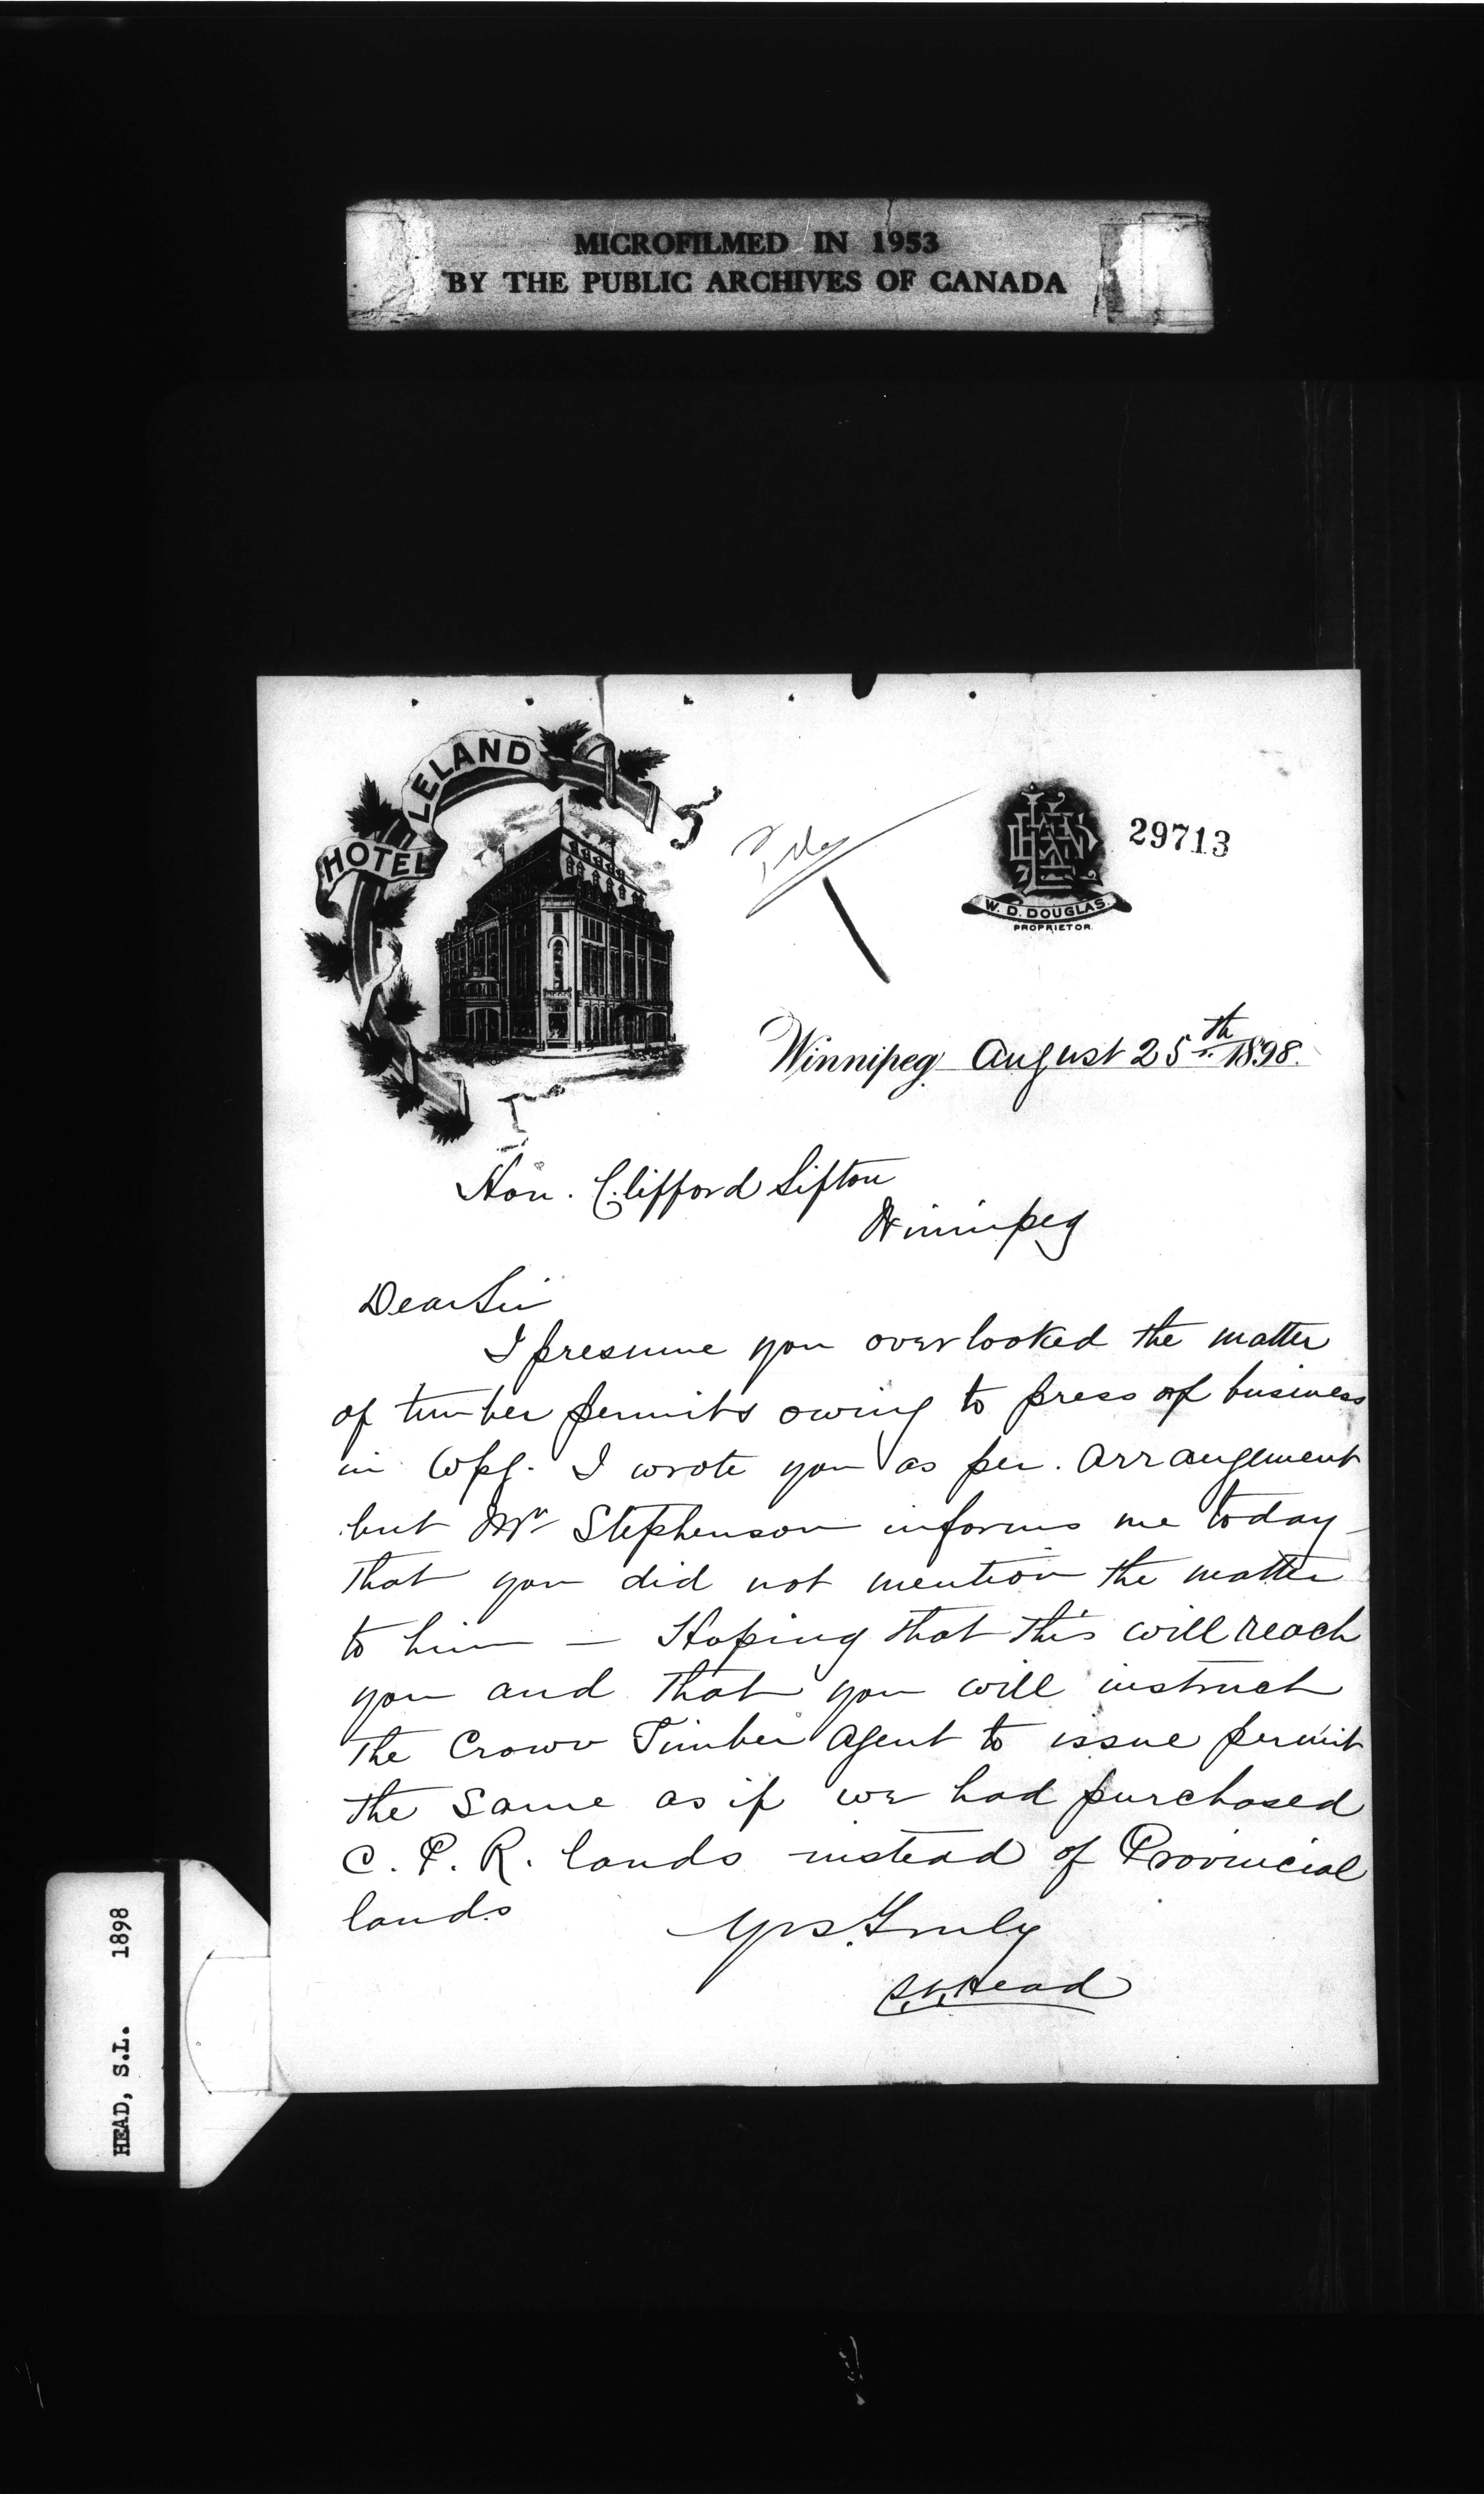 MICROFILMED IN 1953
BY THE PUBLIC ARCHIVES OF CANADA
HOTEL LELAND
29713
W. D. DOUGLAS.
PROPRIETOR.
Winnipeg August 25th 1898.
Hon. Clifford Sifton
Winnipeg
Dear Sir
I presume you overlooked the matter
of timber permits owing to press of business
in Wpg. I wrote you as per. arrangement
but Mr Stephenson informs me today
that you did not mention the matter
to him — Hoping that this will reach
you and that you will instruct
the Crown Timber Agent to issue permit
the same as if we had purchased
C. P. R. lands instead of Provincial
lands
Yrs. Truly
S.L. Head
HEAD, S.L. 1898